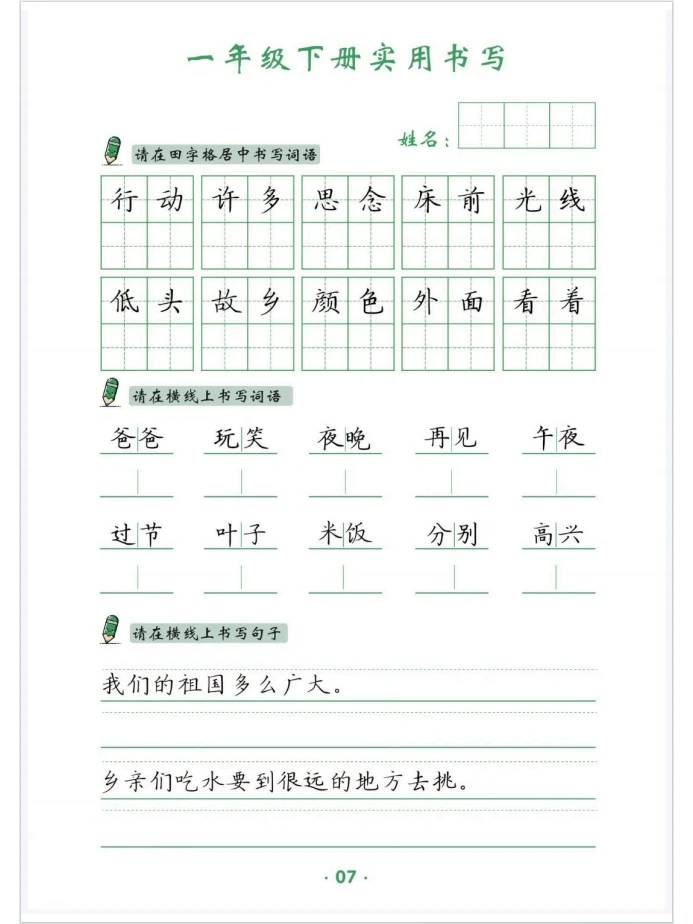 一年级下册实用书写
姓名：
请在田字格居中书写词语
行动 许多 思念 床前 光线
低头 故乡 颜色 外面 看着
请在横线上书写词语
爸爸 玩笑 夜晚 再见 午夜
过节 叶子 米饭 分别 高兴
请在横线上书写句子
我们的祖国多么广大。
乡亲们吃水要到很远的地方去挑。
· 07 ·